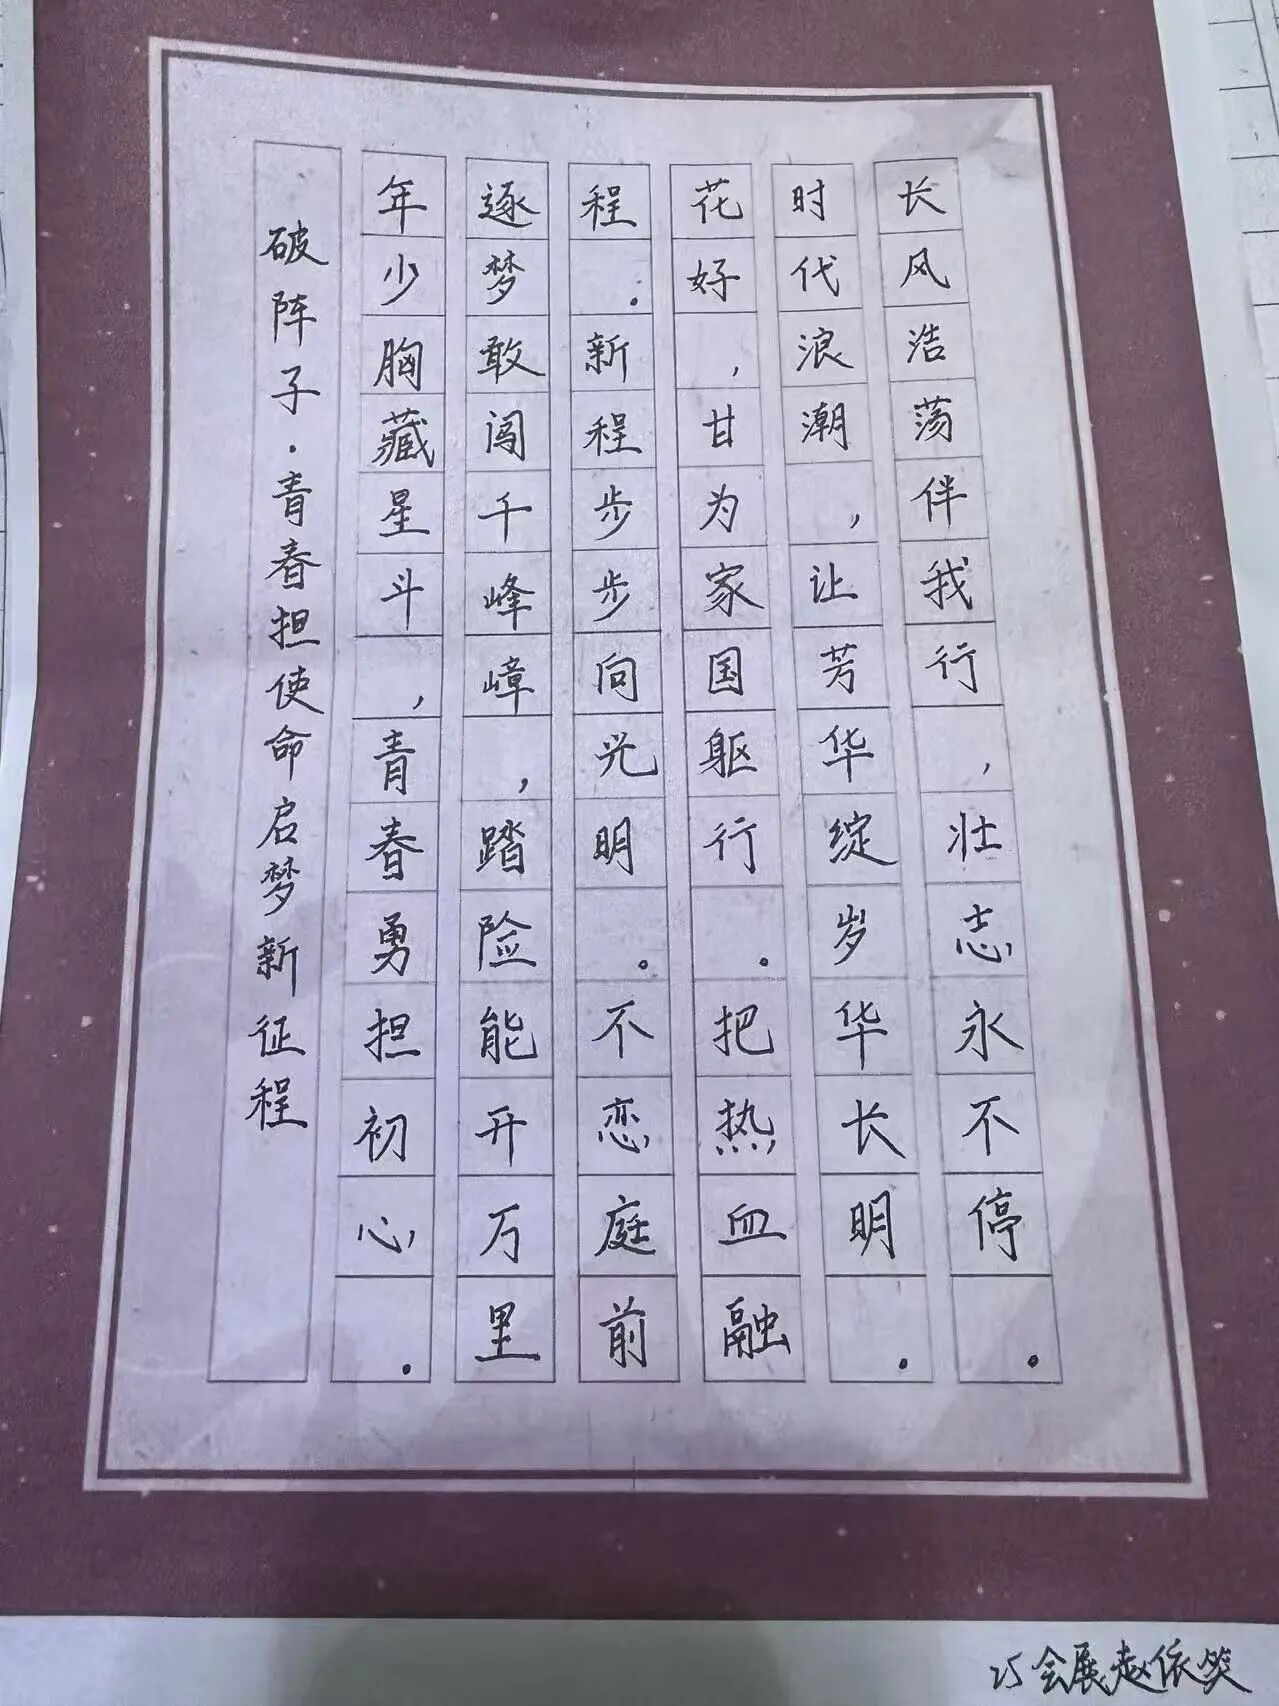 破阵子·青春担使命启梦新征程
年少胸藏星斗，青春勇担初心。
逐梦敢闯千峰嶂，踏险能开万里
程。新程步步向光明。不恋庭前
花好，甘为家国躯行。把热血融
时代浪潮，让芳华绽岁华长明。
长风浩荡伴我行，壮志永不停。
25会展赵依笑